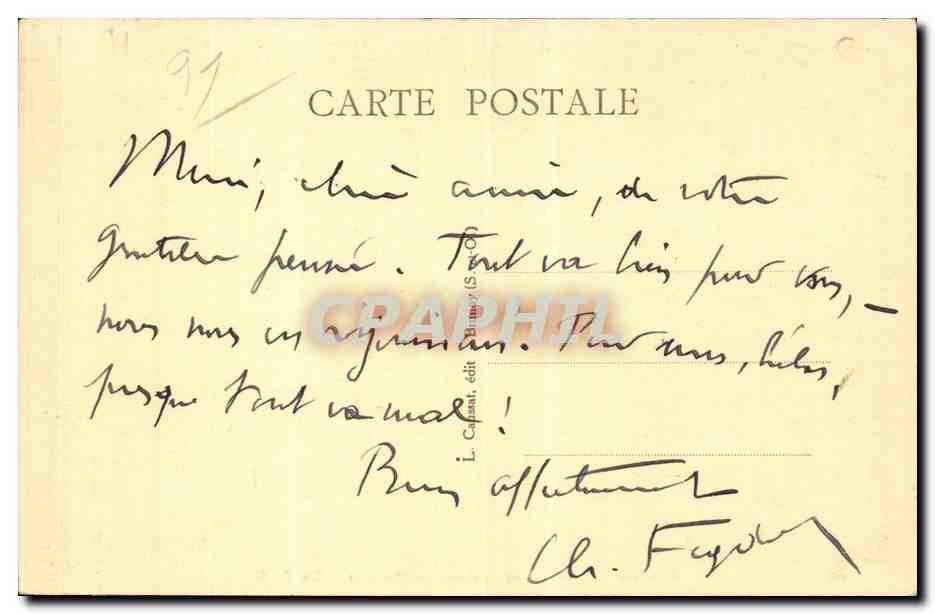 91
CARTE POSTALE
Merci, chère amie, de votre
gentille pensée. Tout va bien pour vous, –
nous nous en réjouissons. Pour nous, hélas,
presque tout va mal !
Bien affectueusement
Ch.
L. Caussat, édit Brunoy (S.-et-O.)
CPAPHIL